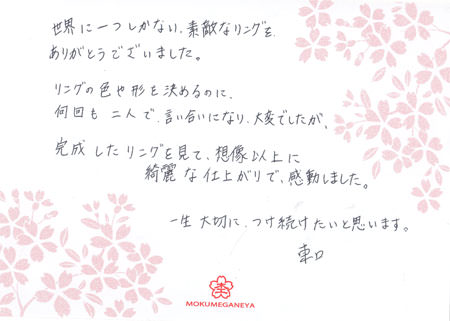 世界に一つしかない、素敵なリングを
ありがとうございました。
リングの色や形を決めるのに、
何回も二人で、言い合いになり、大変でしたが、
完成したリングを見て、想像以上に
綺麗な仕上がりで、感動しました。
一生大切に、つけ続けたいと思います。
車口
MOKUMEGANEYA